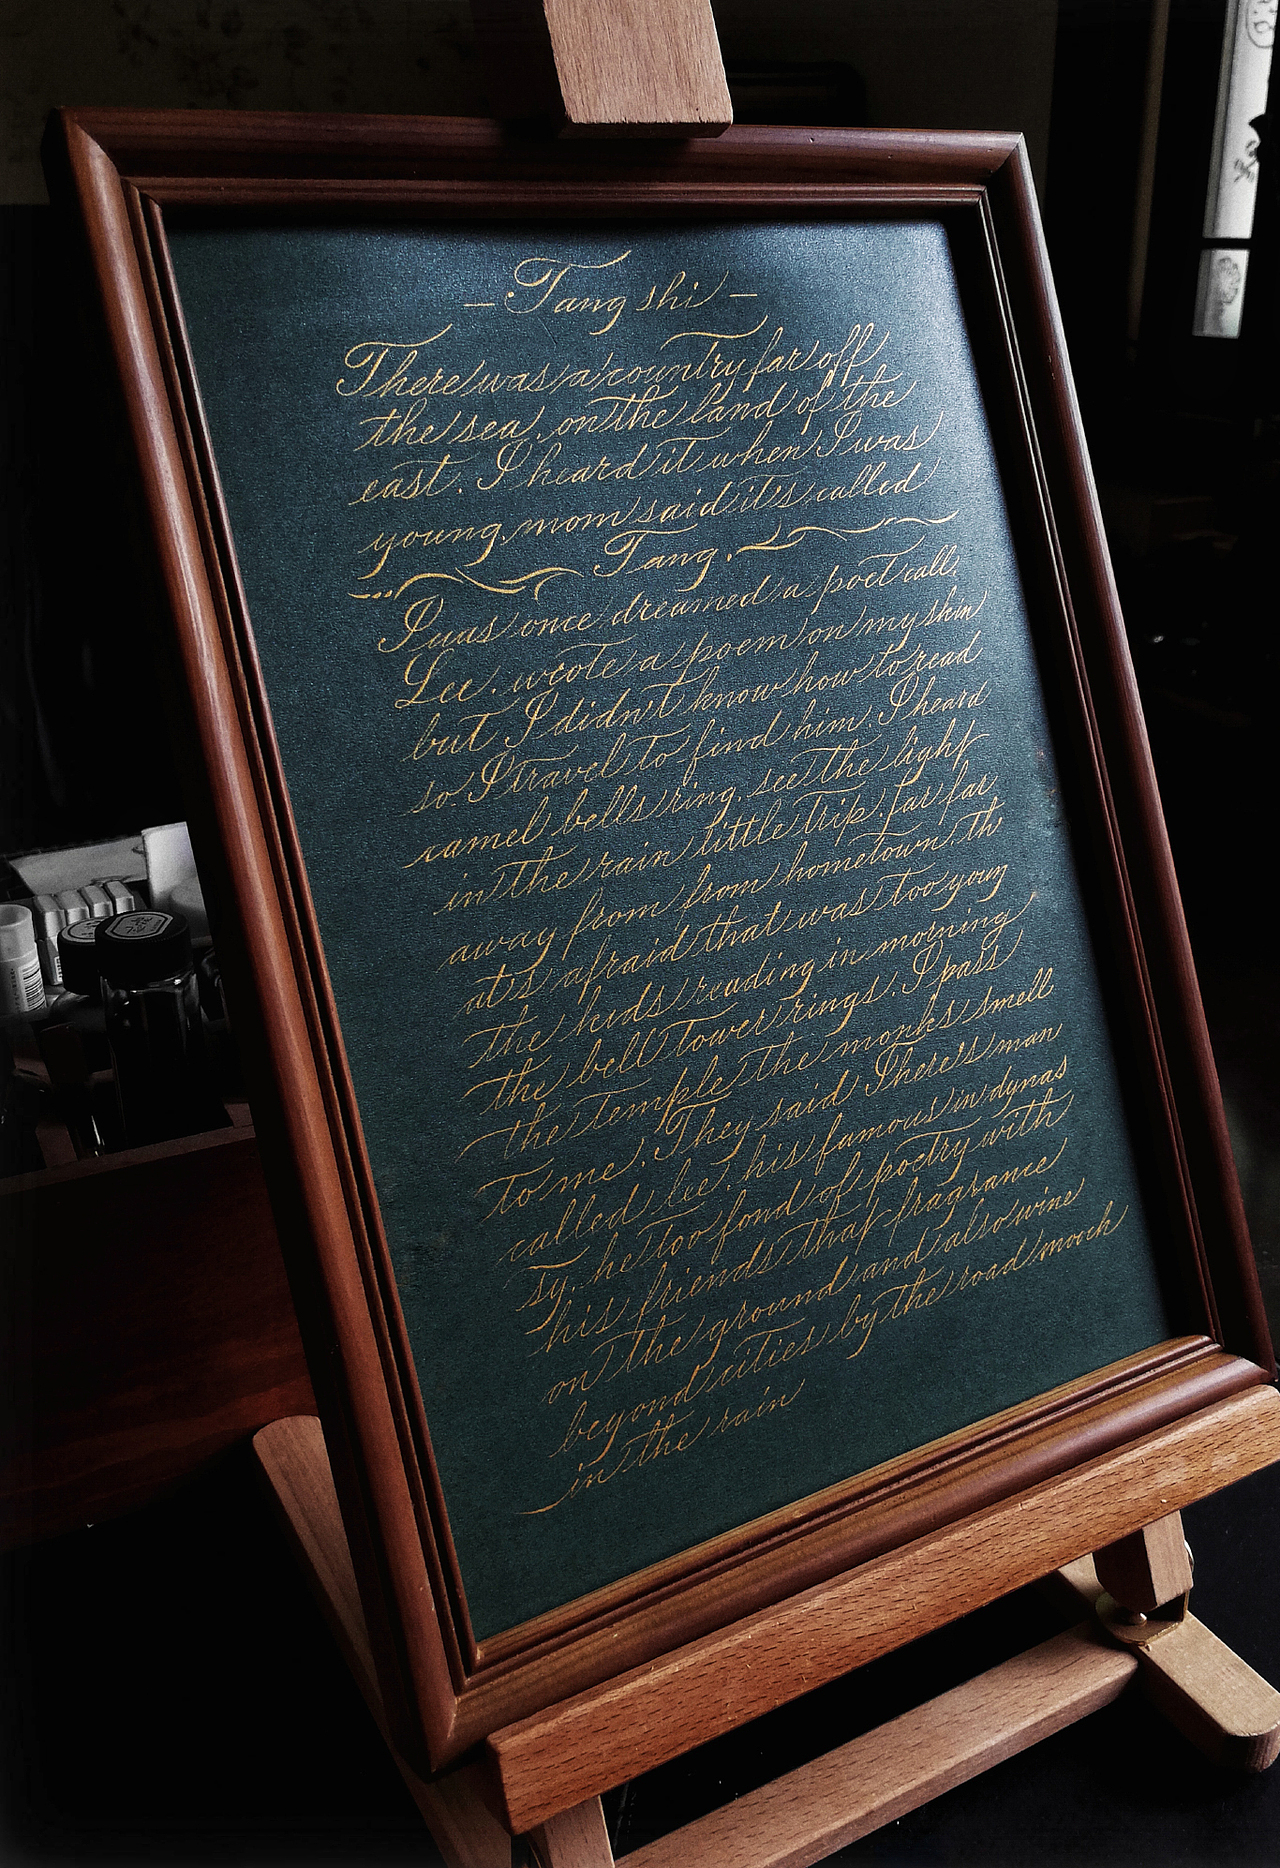 – Tang shi –
There was a country far off
the sea, on the land of the
east. I heard it when I was
young, mom said it's called
Tang.
I was once dreamed a poet call
Lee. wrote a poem on my skin
but I didn't know how to read
so I travel to find him. I heard
camel bells ring, see the light
in the rain little trip. far far
away from from hometown. th
at's afraid that was too young
the kids reading in morning
the bell tower rings. I pass
the temple the monks smell
to me. They said There's man
called Lee. his famous in dynas
ty. he too fond of poetry with
his friends that fragrance
on the ground and also wine
beyond cities by the road
in the rain